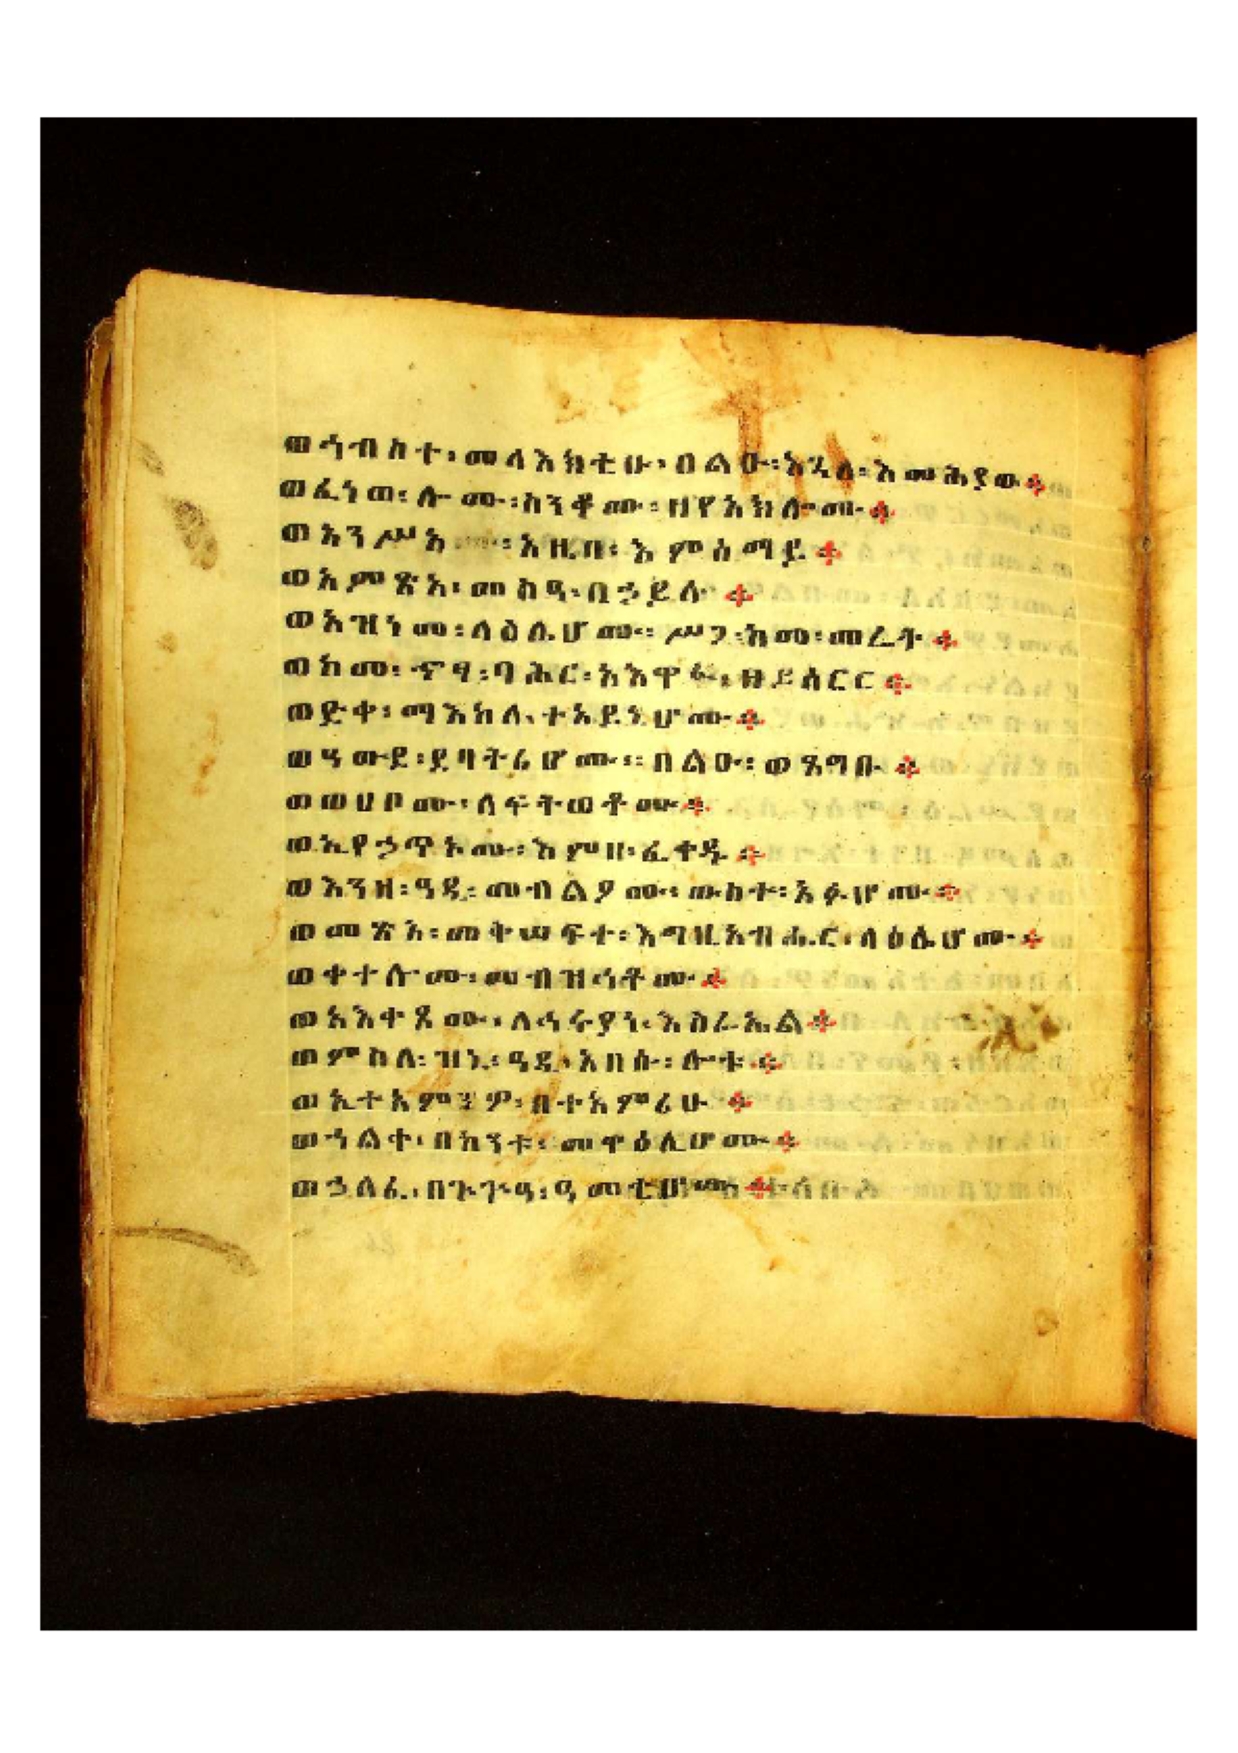 ወኅብስተ፡ መላእክቲሁ፡ በልዑ፡ እጓለ፡ እመሕያው፨
ወፈነወ፡ ሎሙ፡ ስንቆሙ፡ ዘየአክሎሙ፨
ወአንሥአ፡ አዜበ፡ እምሰማይ፨
ወአምጽአ፡ መስዓ፡ በኃይሉ፨
ወአዝነመ፡ ላዕሌሆሙ፡ ሥጋ፡ ከመ፡ መሬት፨
ወከመ፡ ኖፃ፡ ባሕር፡ አእዋፍ፡ ዘይሰርር፨
ወድቀ፡ ማእከለ፡ ተአይኒሆሙ፨
ወዓውደ፡ ደባትሪሆሙ፡ በልዑ፡ ወጸግቡ፨
ወወሀቦሙ፡ ለፍትወቶሙ፨
ወኢየኃጥኦሙ፡ እምዘ፡ ፈቀዱ፨
ወእንዘ፡ ዓዲ፡ መብልዖሙ፡ ውስተ፡ አፉሆሙ፨
ወመጽአ፡ መቅሠፍተ፡ እግዚአብሔር፡ ላዕሌሆሙ፨
ወቀተሎሙ፡ መብዝኅቶሙ፨
ወአእቀጾሙ፡ ለኅሩያነ፡ እስራኤል፨
ወምስለ፡ ዝኒ፡ ዓዲ፡ አበሱ፡ ሎቱ፨
ወኢተአምንዎ፡ በተአምሪሁ፨
ወኀልቀ፡ በከንቱ፡ መዋዕሊሆሙ፨
ወኃለፈ፡ በጕጕዓ፡ ዓመቲሆሙ፨